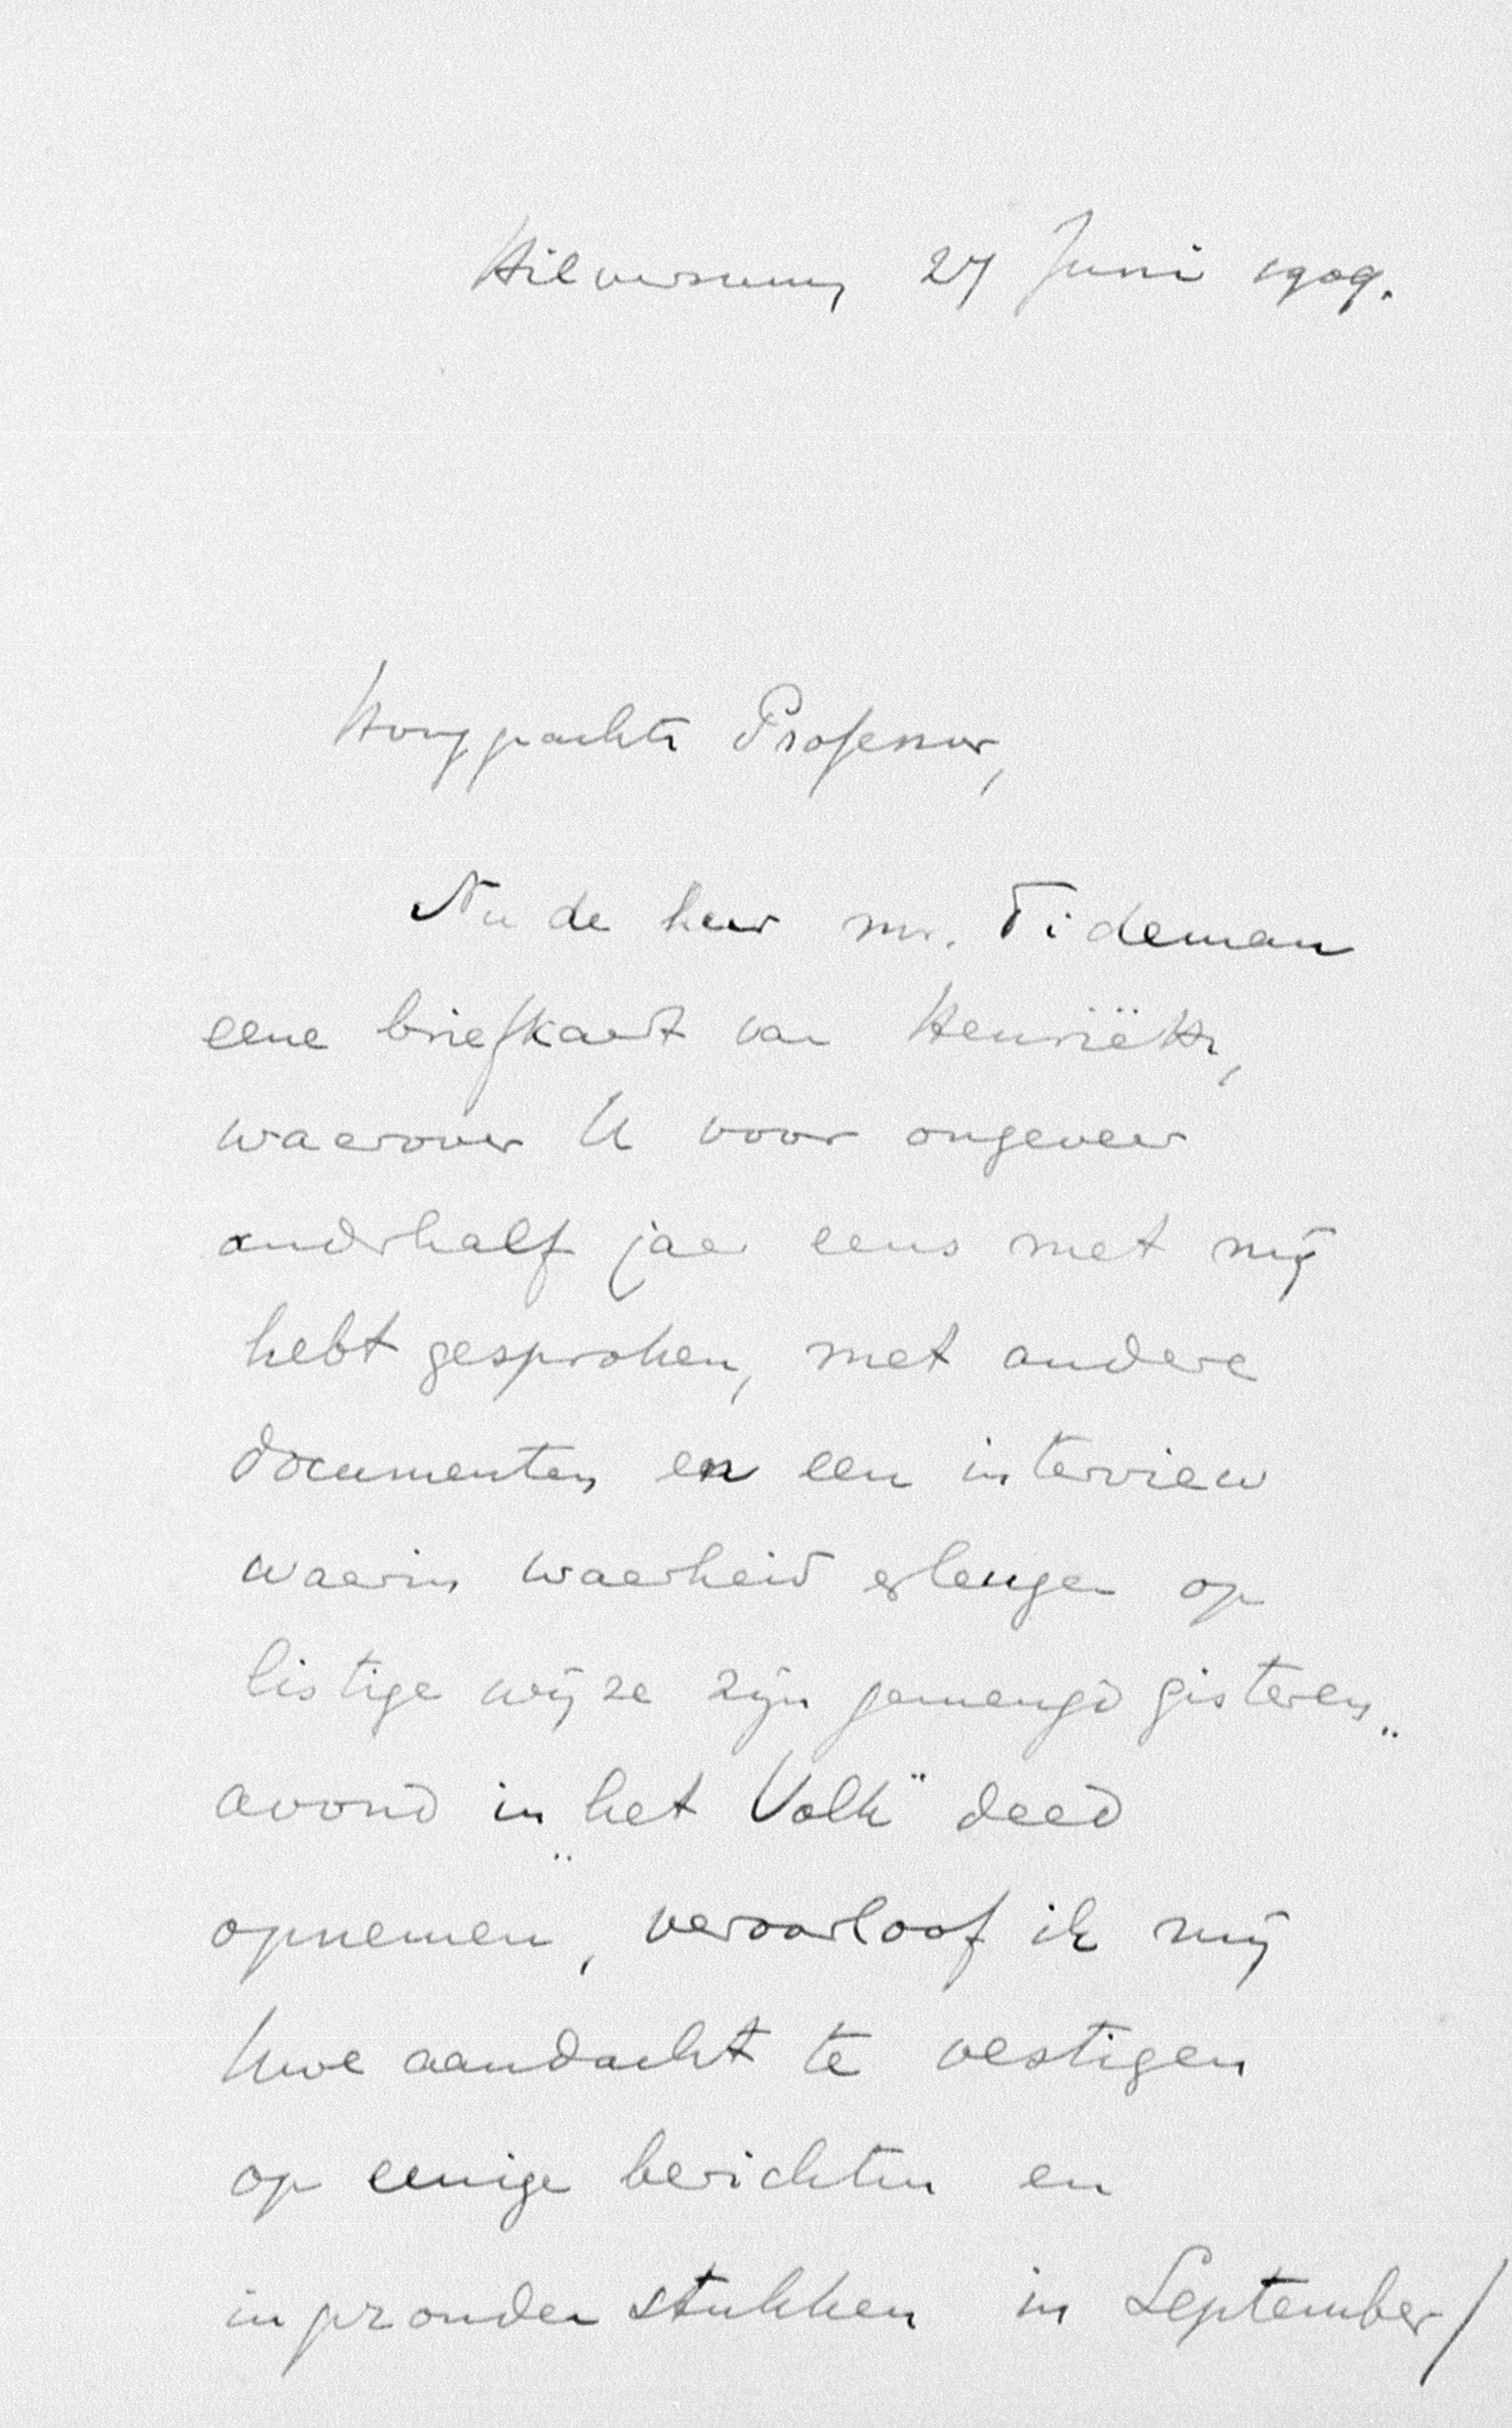 Hilversum, 27 Juni 1909.
Hooggeachte Professor,
Nu de heer mr. Tideman
eene briefkaart van Henriëtte,
waarover U voor ongeveer
anderhalf jaar eens met mij
hebt gesproken, met andere
documenten en een interview
waarin waarheid & leugen op
listige wijze zijn gemengd gisteren„
avond in „het Volk" deed
opnemen, veroorloof ik mij
Uwe aandacht te vestigen
op eenige berichten en
ingezonden stukken in September/